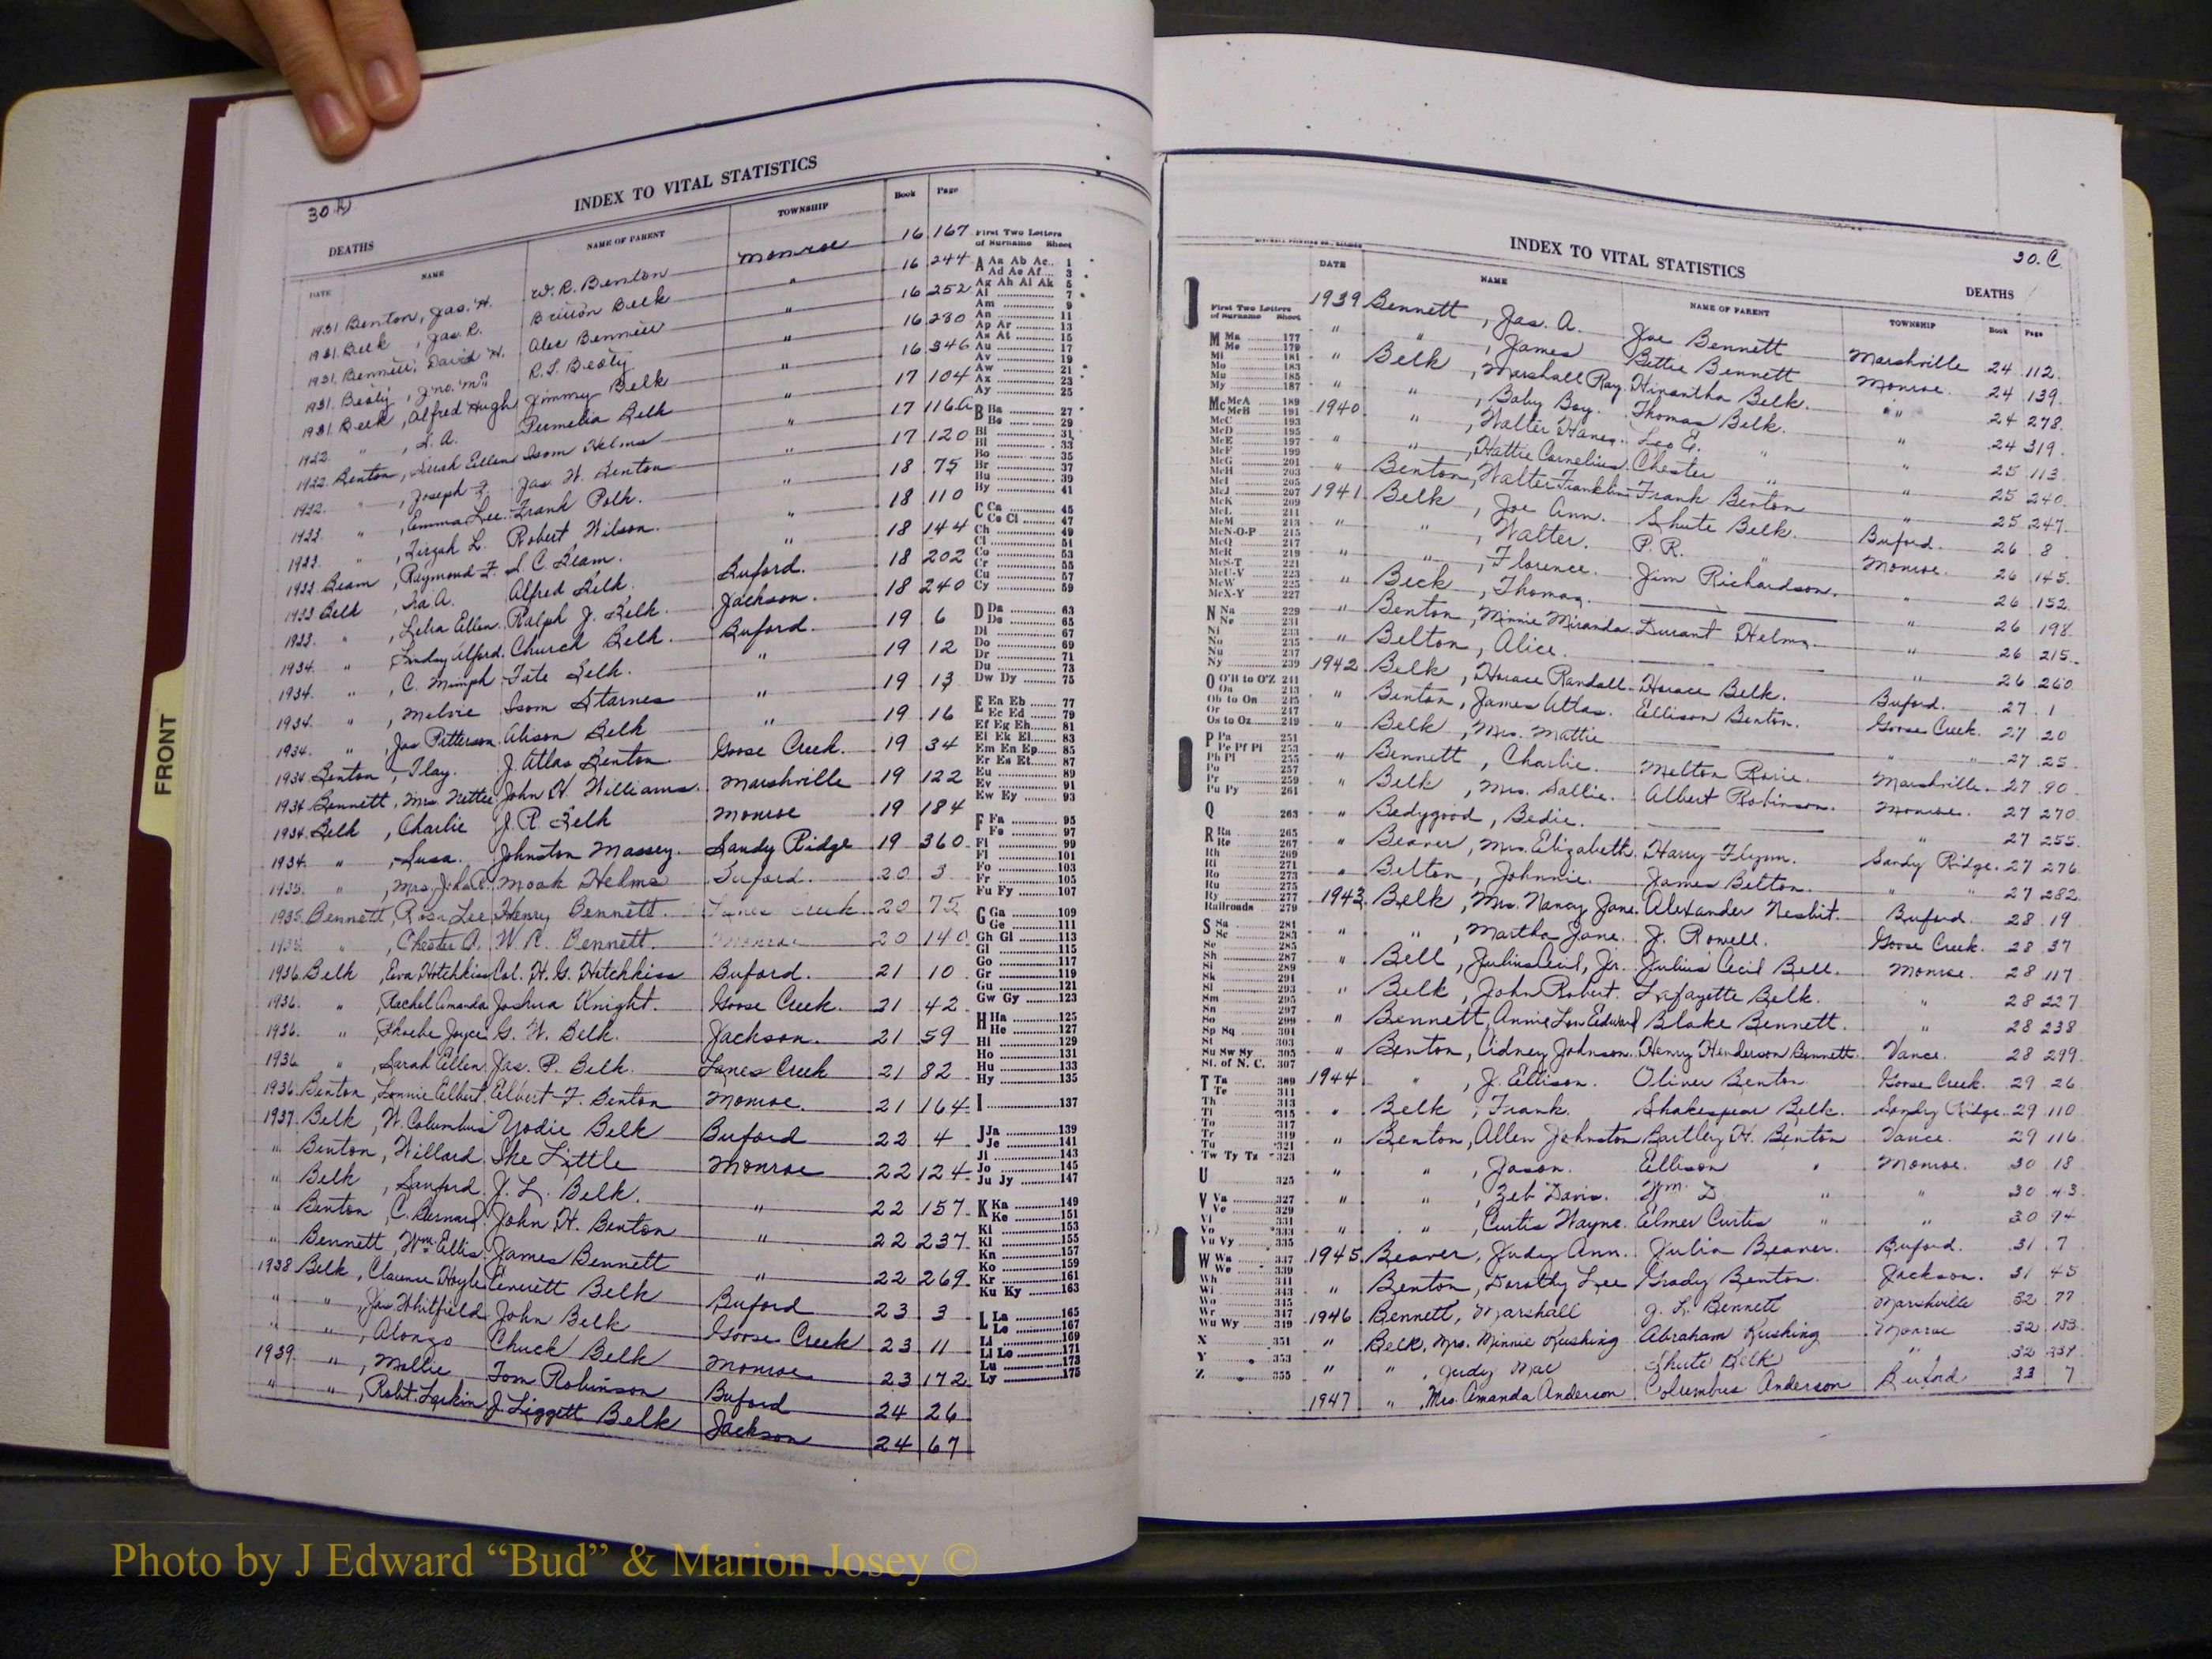 30 B
INDEX TO VITAL STATISTICS
DEATHS
DATE NAME NAME OF PARENT TOWNSHIP Book Page
1931 Benton, Jas. H. W. R. Benton Monroe 16 167
1931 Belk, Jas. R. Britton Belk " 16 244
1931 Bennett, David H. Alec Bennett " 16 252
1931 Beaty, Jno. Mc R. L. Beaty " 16 280
1931 Belk, Alfred Hugh Jimmy Belk " 16 346
1932 " , L. A. Permelia Belk " 17 104
1932 Benton, Sarah Ellen Isom Helms " 17 116A
1932 " , Joseph F. Jas. W. Benton " 17 120
1933 " , Emma Lee Frank Polk. " 18 75
1933 " , Tirzah L. Robert Wilson. " 18 110
1933 Beam, Raymond F. L. C. Beam. " 18 144
1933 Belk, Ira A. Alfred Belk. Buford. 18 202
1933 " , Lelia Ellen. Ralph J. Belk. Jackson. 18 240
1934 " , Lindsay Alford. Church Belk. Buford. 19 6
1934 " , C. Mimph Tate Belk. " 19 12
1934 " , Melvie Isom Starnes " 19 13
1934 " , Jas. Patterson. Alison Belk " 19 16
1934 Benton, Flay. J. Atlas Benton Goose Creek. 19 34
1934 Bennett, Mrs Nettie John H. Williams. Marshville 19 122
1934 Belk, Charlie J. R. Belk Monroe 19 184
1934 " , Susa. Johnston Massey. Sandy Ridge 19 360
1935 " , Mrs. John C. Moak Helms Buford. 20 3
1935 Bennett, Rosa Lee Henry Bennett. Lanes Creek 20 75
1935 " , Chester A. W. R. Bennett. Monroe 20 140
1936 Belk, Eva Hotchkiss Col. H. G. Hotchkiss Buford. 21 10
1936 " , Rachel Amanda Joshua Knight. Goose Creek. 21 42
1936 " , Phoebe Joyce G. W. Belk. Jackson. 21 59
1936 " , Sarah Ellen Jas. P. Belk. Lanes Creek 21 82
1936 Benton, Lonnie Elbert Elbert F. Benton Monroe. 21 164
1937 Belk, W. Columbus Yodie Belk Buford 22 4
" Benton, Willard. Ike Little Monroe 22 124
" Belk, Sanford. J. L. Belk. " 22 157
" Benton, C. Bernard. John H. Benton " 22 237
" Bennett, Wm. Ellis. James Bennett " 22 269
1938 Belk, Clarence Hoyle Everett Belk Buford 23 3
" " , Jas. Whitfield John Belk Goose Creek 23 11
" " , Alonzo Chuck Belk Monroe 23 172
1939 " , Mollie Tom Robinson Buford 24 26
" " , Robt. Larkin J. Liggett Belk Jackson 24 67
First Two Letters
of Surname Sheet
A Aa Ab Ac.. 1
Ad Ae Af... 3
Ag Ah Ai Ak 5
Al 7
Am 9
An 11
Ap Ar 13
As At 15
Au 17
Av 19
Aw 21
Ax 23
Ay 25
B Ba 27
Be 29
Bi 31
Bl 33
Bo 35
Br 37
Bu 39
By 41
C Ca 45
Ce Ci 47
Ch 49
Cl 51
Co 53
Cr 55
Cu 57
Cy 59
D Da 63
De 65
Di 67
Do 69
Dr 71
Du 73
Dw Dy 75
E Ea Eb 77
Ec Ed 79
Ef Eg Eh 81
Ei Ek El 83
Em En Ep 85
Er Es Et 87
Eu 89
Ev 91
Ew Ey 93
F Fa 95
Fe 97
Fi 99
Fl 101
Fo 103
Fr 105
Fu Fy 107
G Ga 109
Ge 111
Gh Gi 113
Gl 115
Go 117
Gr 119
Gu 121
Gw Gy 123
H Ha 125
He 127
Hi 129
Ho 131
Hu 133
Hy 135
I 137
J Ja 139
Je 141
Ji 143
Jo 145
Ju Jy 147
K Ka 149
Ke 151
Ki 153
Kl 155
Kn 157
Ko 159
Kr 161
Ku Ky 163
L La 165
Le 167
Li 169
Ll Lo 171
Lu 173
Ly 175
FRONT
30. C.
INDEX TO VITAL STATISTICS
DEATHS
DATE NAME NAME OF PARENT TOWNSHIP Book Page
1939 Bennett, Jas. A. Joe Bennett Marshville 24 112.
" " , James Bettie Bennett Monroe. 24 139.
" Belk, Marshall Ray. Hinantha Belk. " 24 278.
" " , Baby Boy. Thomas Belk. " 24 319.
1940 " , Walter Hanes. Leo E. " " 25 113.
" " , Hattie Cornelius. Chester " " 25 240.
" Benton, Walter Franklin Frank Benton " 25 247.
1941 Belk, Joe Ann. Shute Belk. Buford. 26 8
" " , Walter. P. R. " Monroe. 26 145.
" " , Florence. Jim Richardson. " 26 152.
" Beck, Thomas. " 26 198.
" Benton, Minnie Miranda. Durant Helms. " 26 215.
" Belton, Alice. " 26 260.
1942 Belk, Horace Randall. Horace Belk. Buford. 27 1
" Benton, James Atlas. Ellison Benton. Goose Creek. 27 20
" Belk, Mrs. Mattie " " 27 25.
" Bennett, Charlie. Melton Rorie. Marshville. 27 90.
" Belk, Mrs. Sallie. Albert Robinson. Monroe. 27 270
" Bedygood, Bedie. " 27 255.
" Beaver, Mrs. Elizabeth. Harry Flynn. Sandy Ridge. 27 276.
" Belton, Johnnie. James Belton. " " 27 282.
1943 Belk, Mrs. Nancy Jane. Alexander Nesbit. Buford. 28 19
" " , Martha Jane. J. Rowell. Goose Creek. 28 37
" Bell, Julius Cecil, Jr. Julius Cecil Bell. Monroe. 28 117
" Belk, John Robert. Lafayette Belk. " 28 227
" Bennett, Annie Lou Edward Blake Bennett. " 28 238
" Benton, Cidney Johnson. Henry Henderson Bennett. Vance. 28 299.
1944 " , J. Ellison. Oliver Benton. Goose Creek. 29 26
" Belk, Frank. Shakespear Belk. Sandy Ridge. 29 110
" Benton, Allen Johnston Bartley H. Benton Vance. 29 116
" " , Jason. Ellison " Monroe. 30 18
" " , Zeb Davis. Wm. D. " " 30 43
" " , Curtis Wayne. Elmer Curtis " " 30 94
1945 Beaver, Judy Ann. Julia Beaver. Buford. 31 7
" Benton, Dorothy Lee Grady Benton. Jackson. 31 45
1946 Bennett, Marshall J. L. Bennett Marshville 32 77
" Belk, Mrs. Minnie Kushing Abraham Kushing Monroe 32 183.
" " , Judy Mae Shute Belk " 32
1947 " , Mrs. Amanda Anderson Columbus Anderson Buford 33 7
First Two Letters
of Surname Sheet
M Ma 177
Me 179
Mi 181
Mo 183
Mu 185
My 187
Mc McA 189
McB 191
McC 193
McD 195
McE 197
McF 199
McG 201
McH 203
McI 205
McJ 207
McK 209
McL 211
McM 213
McN-O-P 215
McQ 217
McR 219
McS-T 221
McU-V 223
McW 225
McX-Y 227
N Na 229
Ne 231
Ni 233
No 235
Nu 237
Ny 239
O O'B to O'Z 241
Oa 243
Ob to On 245
Or 247
Os to Oz 249
P Pa 251
Pe Pf Pi 253
Ph Pl 255
Po 257
Pr 259
Pu Py 261
Q 263
R Ra 265
Re 267
Rh 269
Ri 271
Ro 273
Ru 275
Ry 277
Railroads 279
S Sa 281
Sc 283
Se 285
Sh 287
Si 289
Sk 291
Sl 293
Sm 295
Sn 297
So 299
Sp Sq 301
St 303
Su Sw Sy 305
St. of N. C. 307
T Ta 309
Te 311
Th 313
Ti 315
To 317
Tr 319
Tu 321
Tw Ty Tz 323
U 325
V Va 327
Ve 329
Vi 331
Vo 333
Vu Vy 335
W Wa 337
We 339
Wh 341
Wi 343
Wo 345
Wr 347
Wu Wy 349
X 351
Y 353
Z 355
Photo by J Edward “Bud” & Marion Josey ©